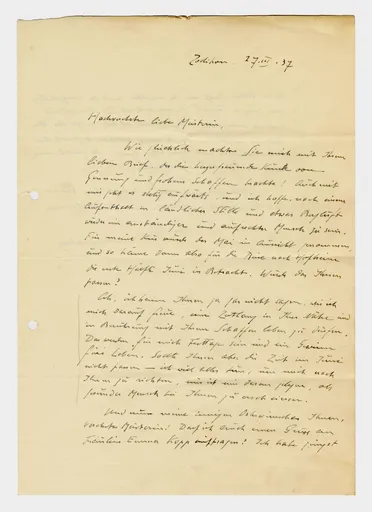 Zollikon, 27.III.37
Hochverehrte liebe Meisterin,
Wie glücklich machten Sie mich mit Ihrem
lieben Brief, der die Kunde von
Genesung und frohem Schaffen brachte! Auch mit
mir geht es stetig aufwärts, und ich hoffe, nach einem
Aufenthalt in ländlicher Stille und etwas
wieder ein anständiger und aufrechter Mensch zu sein.
Für meine Kur würde der Mai in Aussicht genommen,
und so käme dann also für die Reise nach
die erste Hälfte Juni in Betracht. Würde das Ihnen
passen?
Ach, ich kann Ihnen ja gar nicht sagen, wie ich
mich darauf freue, eine Zeitlang in Ihrer Nähe und
in Berührung mit Ihrem Schaffen leben zu dürfen.
Das werden für mich Festtage sein und ein Gewinn
fürs Leben. Sollte Ihnen aber die Zeit im Juni
nicht passen — ich will alles tun, um mich nach
Ihnen zu richten, mir ist nur daran gelegen, als
gesunder Mensch bei Ihnen zu
Und nun meine innigen Osterwünsche Ihnen,
verehrte Meisterin! Darf ich auch einen Gruss an
Fräulein Emma Kopp auftragen? Ich habe jüngst